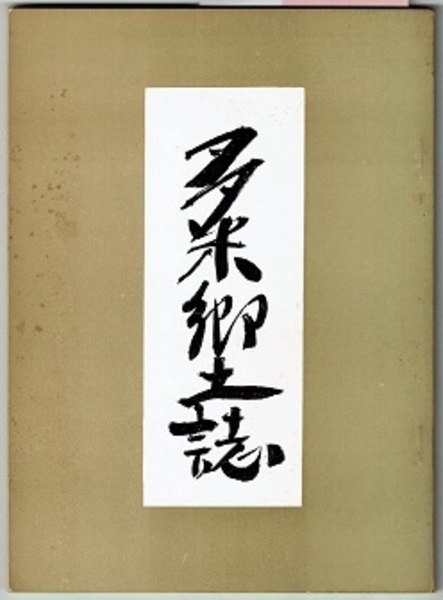 多米郷土誌